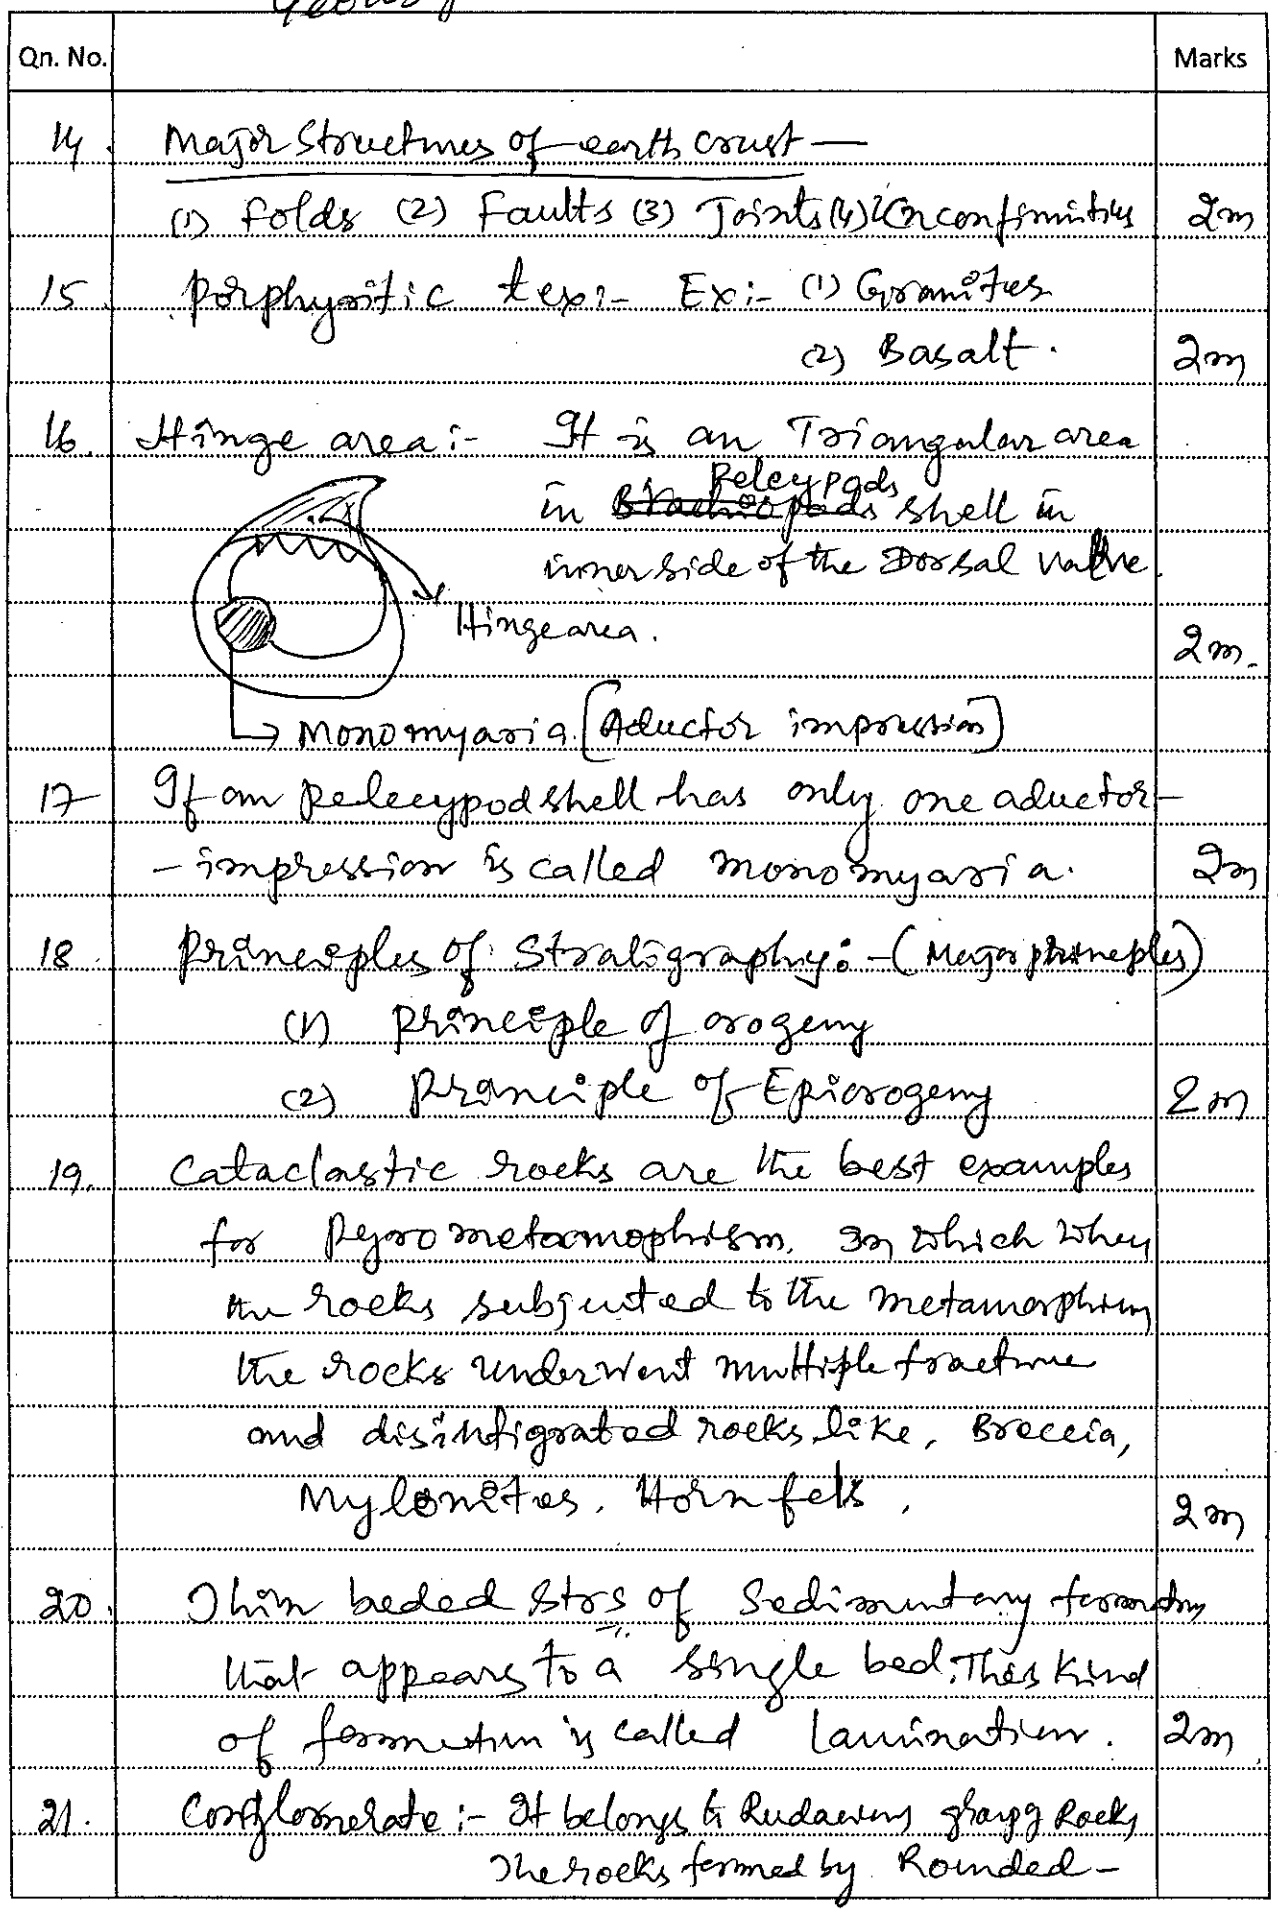 Geology
Qn. No. Marks
14. Major Structures of earth crust —
(1) Folds (2) Faults (3) Joints (4) Unconfirmities 2m
15. Porphyritic tex:- Ex:- (1) Granites
(2) Basalt. 2m
16. Hinge area:- It is an Triangular area
in Brachiopods Pelecypods shell in
inner side of the Dorsal valve.
Hinge area. 2m.
Monomyaria [Aductor impression]
17 If an pelecypod shell has only one aductor-
- impression is called monomyaria. 2m
18. Principles of Stratigraphy:- (Major principles)
(1) Principle of orogeny
(2) Principle of Epiorogeny 2m
19. Cataclastic rocks are the best examples
for Pyrometamophism. In which when
the rocks subjected to the metamorphism
the rocks underwent multiple fracture
and disintigrated rocks like, Breccia,
Mylonites. Hornfels. 2m
20. Thin beded Strs of Sedimentary formation
that appears to a single bed. This kind
of formation is called Lamination. 2m
21. Conglomerate:- It belongs to Rudaceous group of Rocks
The rocks formed by Rounded -